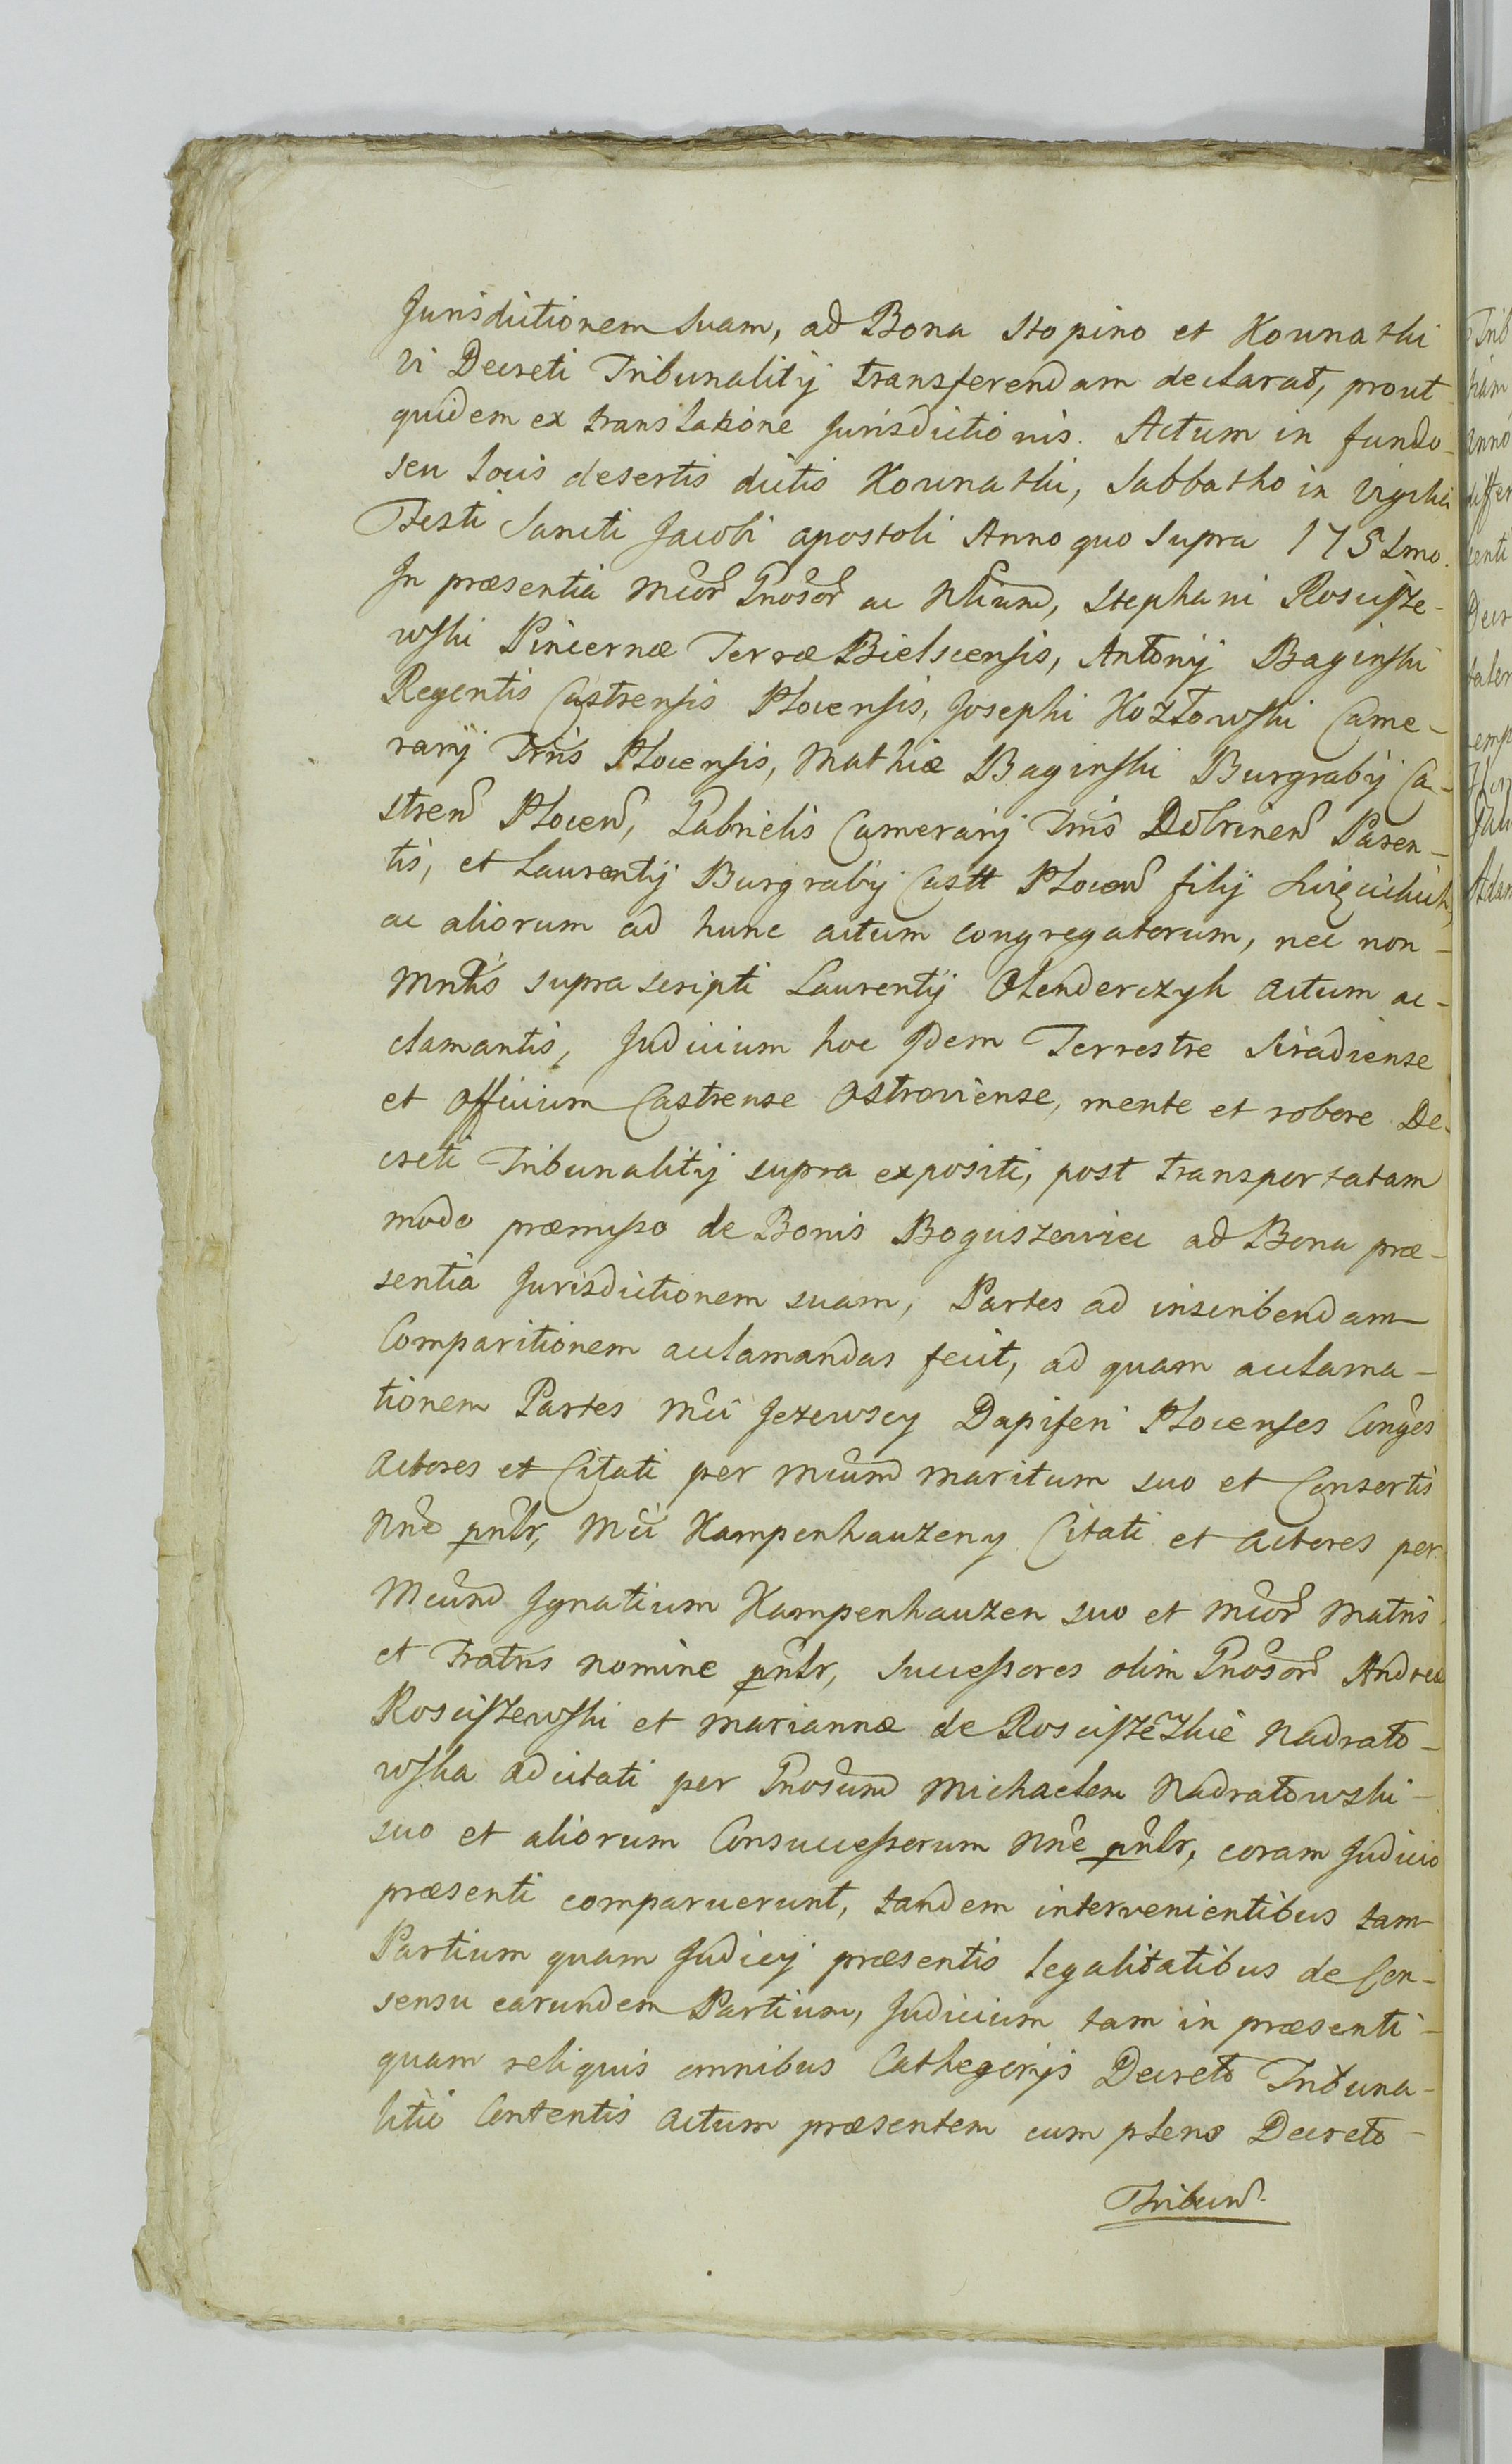 Jurisdictionem suam, ad Bona Stopino et Kownatki
vi Decreti Tribunalitij transferendam declarat, prout
quidem ex translatione Jurisdictionis. Actum in fundo
seu locis desertis dictis Kownatki, Sabbatho in vigilia
Festi Sancti Jacobi apostoli Anno quo supra 1751mo.
In præsentia Mcord Gnosord ac Nlium, Stephani Roscisze-
wski Pincernæ Terræ Bielscensis, Antonij Baginski
Regentis Castrensis Plocensis, Josephi Kozłowski Came-
rarij Trris Plocensis, Mathiæ Baginski Burgrabij Ca-
stren Plocen, Gabrielis Camerarij Trris Dobrinen Paren-
tis, et Laurentij Burgrabij Castt Plocen filij
ac aliorum ad hunc actum congregatorum, nec non
Mnlis supra scripti Laurentij Olenderczyk actum ac-
clamantis, Judicium hoc Idem Terrestre Siradiense
et Officium Castrense Ostroviense, mente et robore De-
creti Tribunalitij supra expositi, post transportatam
modo præmisso de Bonis Boguszewice ad Bona præ-
sentia Jurisdictionem suam, Partes ad inscribendam
Comparitionem acclamandas fecit, ad quam acclama-
tionem Partes Mci Jezewscy Dapiferi Plocenses Conges
Actores et Citati per Mcum maritum suo et Consortis
Nne pnlr, Mci Kampenhauzeny Citati et Actores per
Mcum Ignatium Kampenhauzen suo et Mcor Matris
et Fratris nomine pnlr, Successores olim Gnosord Andreæ
Rosciszewski et Mariannæ de Rosciszezkie Nadrato-
wska adcitati per Gnosum Michaelem Nadratowski
suo et aliorum Consuccessorum Nne pnlr, coram Judicio
præsenti comparuerunt, tandem intervenientibus tam
Partium quam Judicij præsentis legalitatibus de Con-
sensu earundem Partium, Judicium tam in præsenti
quam reliquis omnibus Cathegorijs Decreto Tribuna-
litio Contentis actum præsentem cum pleno Decreto
Tribun.